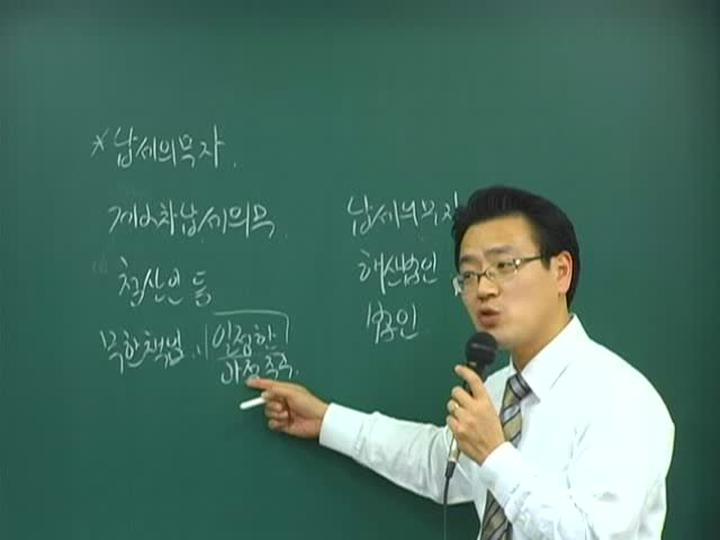 * 납세의무자.
제2차납세의무.
청산인 등
무한책임
일정한
과점주주.
납세의무자
해산법인
법인